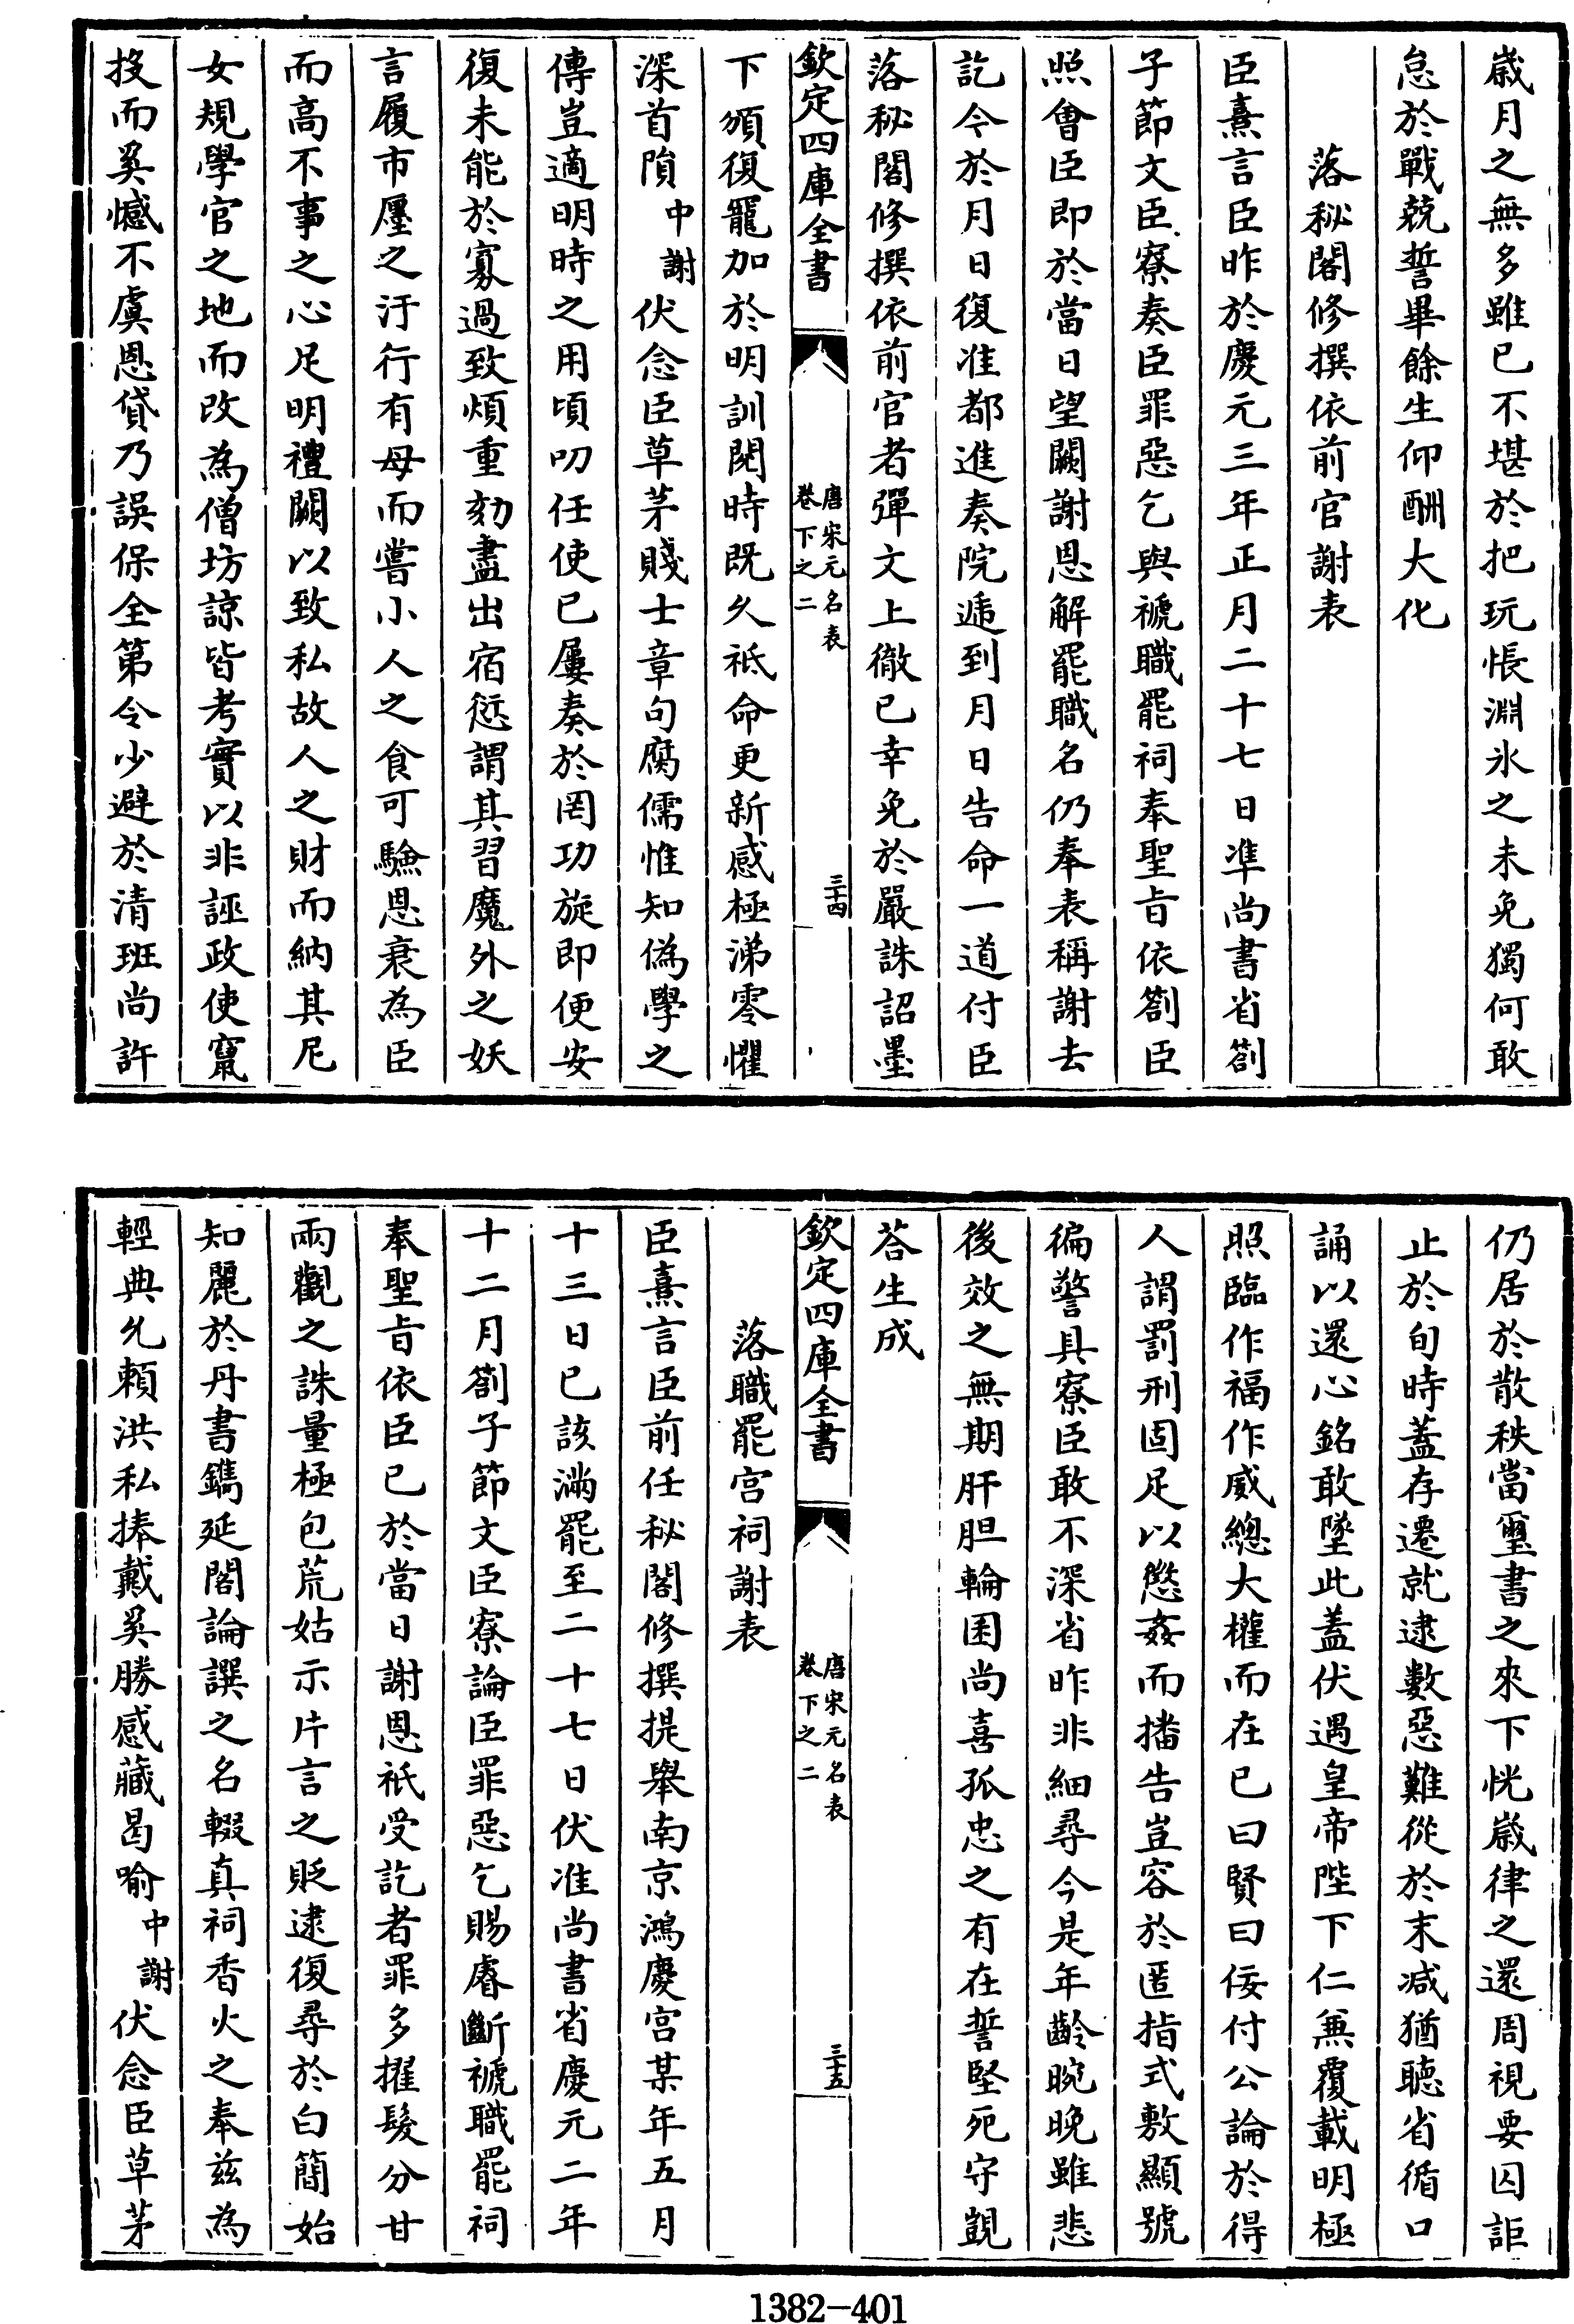 歳月之無多雖已不堪於把玩悵淵氷之未免獨何敢
怠於戰兢誓畢餘生仰酬大化
落秘閣修撰依前官謝表
臣熹言臣昨於慶元三年正月二十七日準尚書省劄
子節文臣寮奏臣罪惡乞與禠職罷祠奉聖旨依劄臣
照會臣即於當日望闕謝恩解罷職名仍奉表稱謝去
訖今於月日復准都進奏院遞到月日告命一道付臣
落秘閣修撰依前官者彈文上徹已幸免於嚴誅詔墨
欽定四庫全書
唐宋元名表
卷下之二
三十四
下頒復寵加於明訓閱時既久祗命更新感極涕零懼
深首隕中謝伏念臣草茅賤士章句腐儒惟知偽學之
傳豈適明時之用頃叨任使已屢奏於罔功旋即便安
復未能於寡過致煩重劾盡出宿愆謂其習魔外之妖
言履市廛之汙行有母而嘗小人之食可驗恩衰為臣
而高不事之心足明禮闕以致私故人之財而納其尼
女規學官之地而改為僧坊諒皆考實以非誣政使竄
投而奚憾不虞恩貸乃誤保全第令少避於清班尚許
仍居於散秩當璽書之來下恍歳律之還周視要囚詎
止於旬時蓋存遷就逮數惡難從於末減猶聽省循口
誦以還心銘敢墜此蓋伏遇皇帝陛下仁兼覆載明極
照臨作福作威總大權而在已曰賢曰佞付公論於得
人謂罰刑固足以懲姦而播告豈容於匿指式敷顯號
徧警具寮臣敢不深省昨非細尋今是年齡晼晚雖悲
後效之無期肝胆輪囷尚喜孤忠之有在誓堅死守覬
荅生成
欽定四庫全書
唐宋元名表
卷下之二
三十五
落職罷宫祠謝表
臣熹言臣前任秘閣修撰提舉南京鴻慶宫某年五月
十三日已該滿罷至二十七日伏准尚書省慶元二年
十二月劄子節文臣寮論臣罪惡乞賜睿斷禠職罷祠
奉聖旨依臣已於當日謝恩祗受訖者罪多擢髮分甘
兩觀之誅量極包荒姑示片言之貶逮復尋於白簡始
知麗於丹書鐫延閣論譔之名輟真祠香火之奉兹為
輕典允賴洪私捧戴奚勝感藏曷喻中謝伏念臣草茅
1382-401